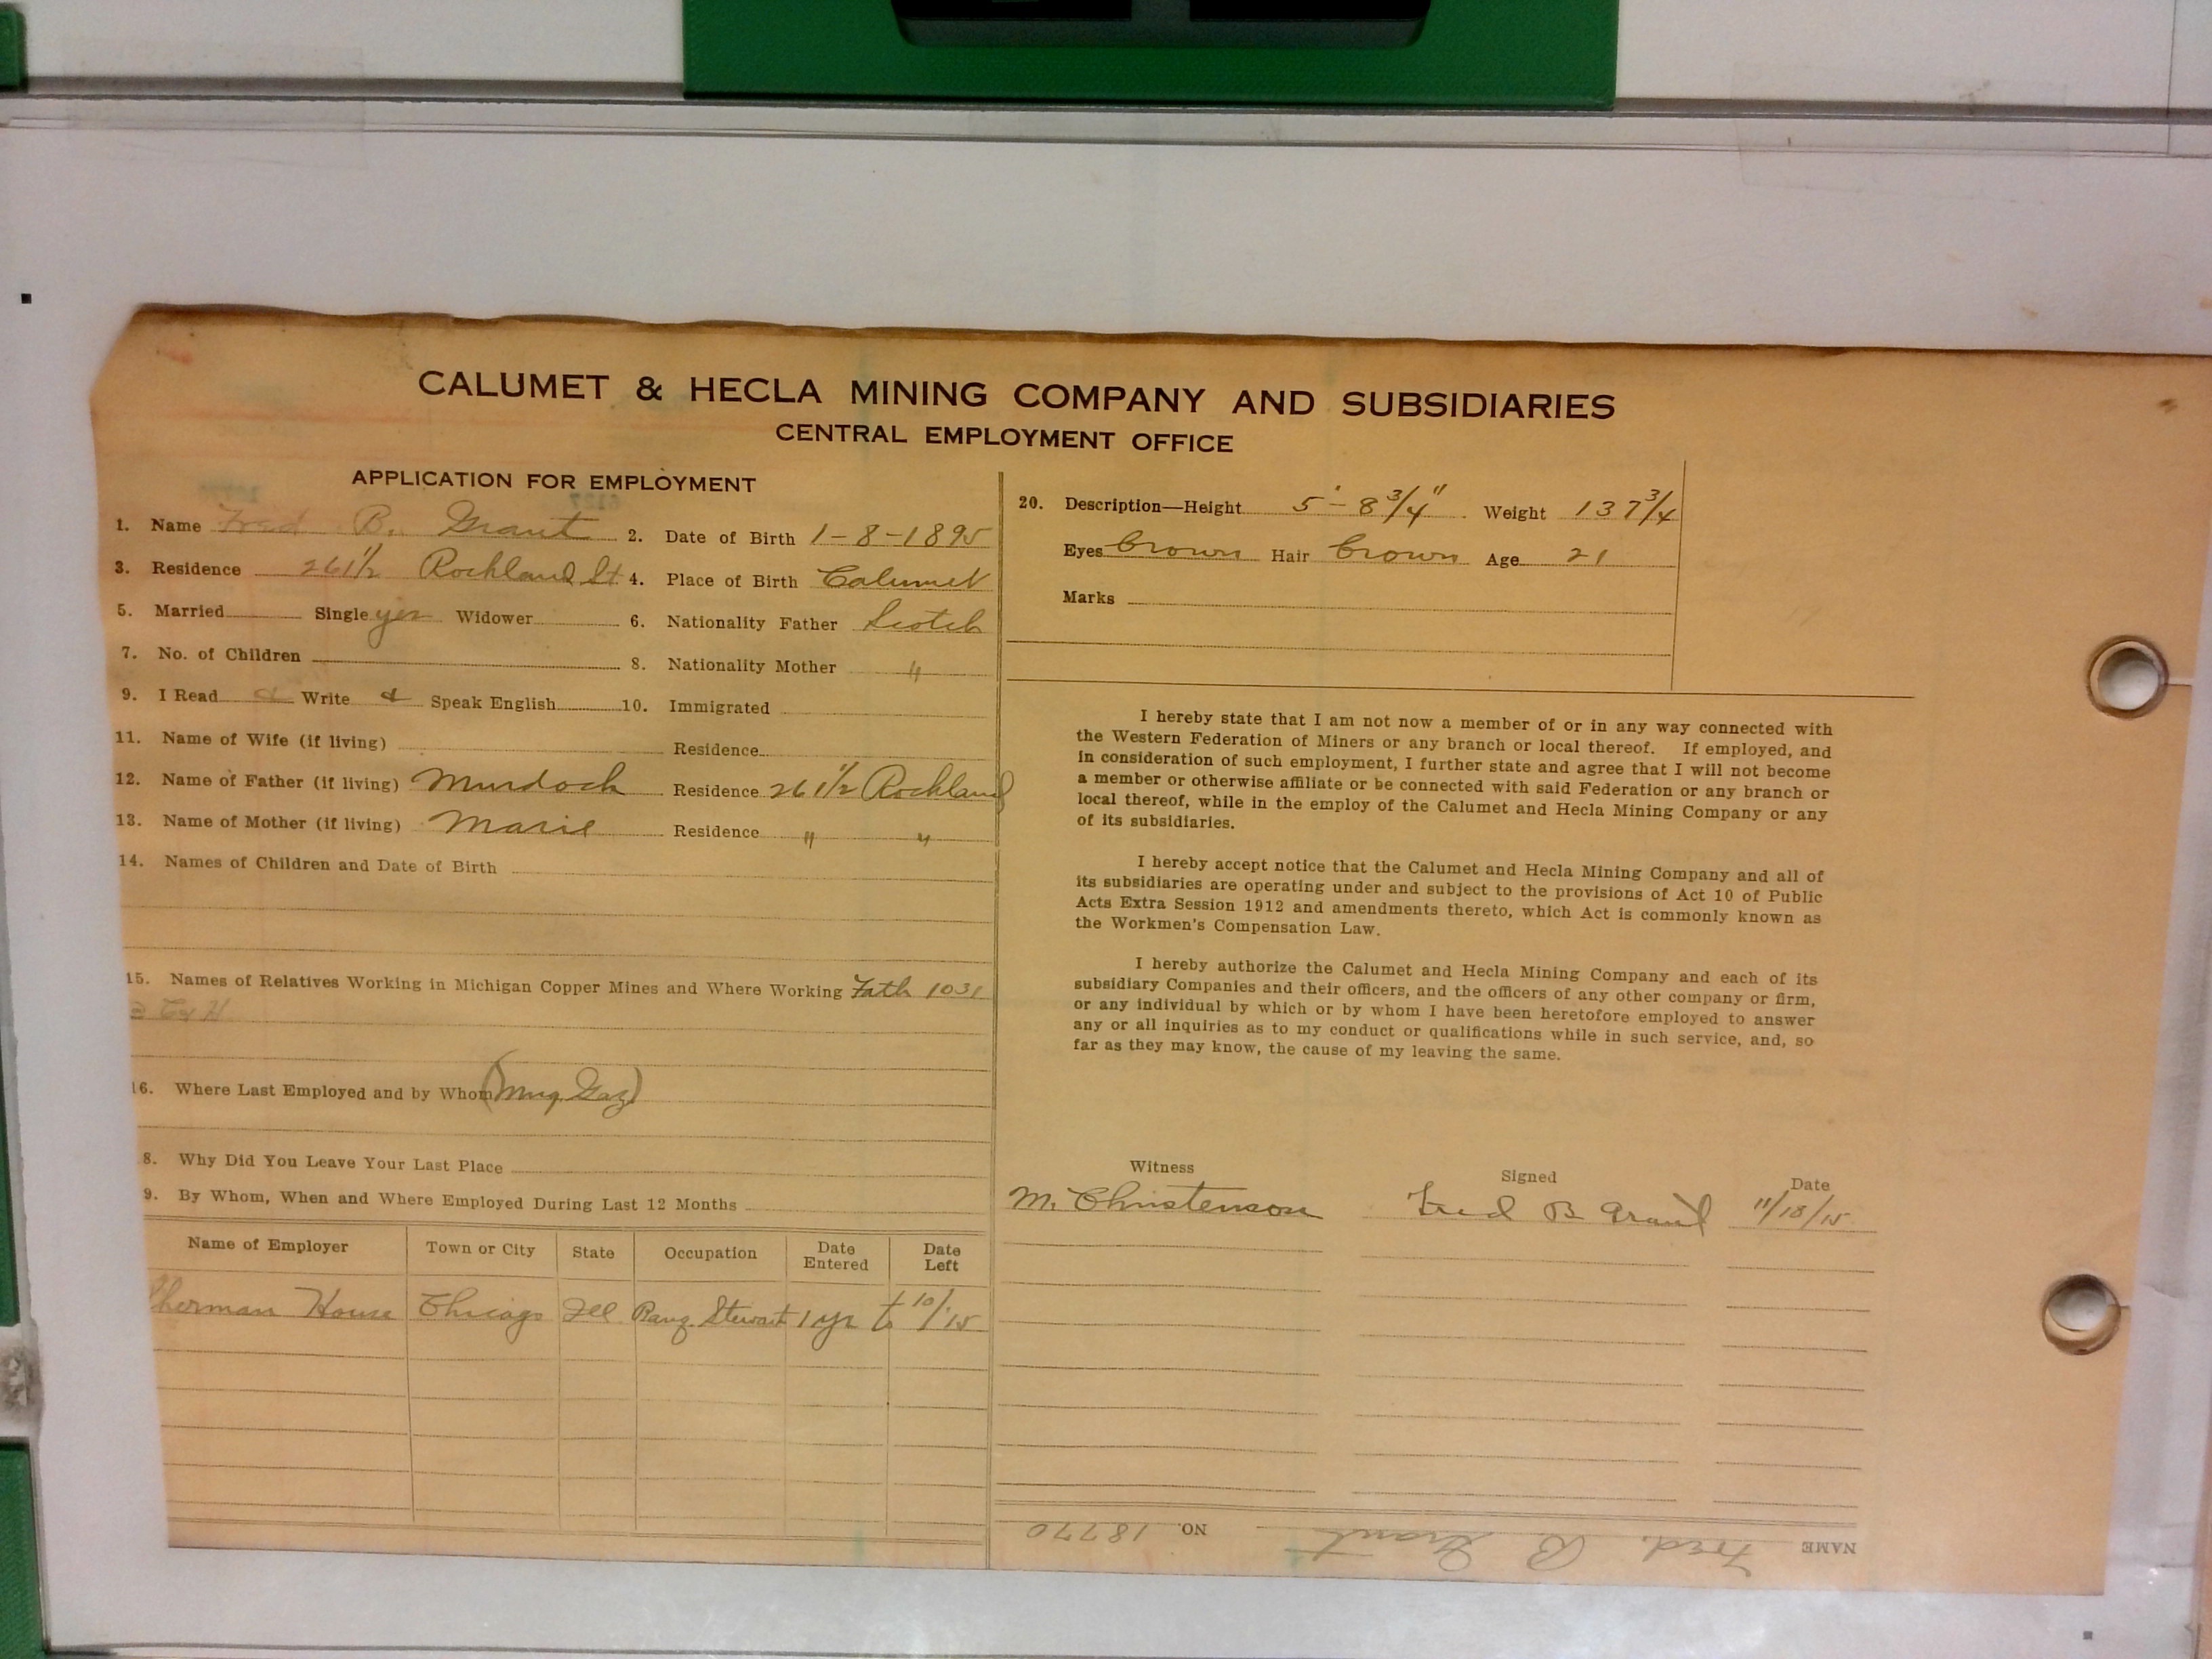 CALUMET & HECLA MINING COMPANY AND SUBSIDIARIES
CENTRAL EMPLOYMENT OFFICE
APPLICATION FOR EMPLOYMENT
1. Name Fred B. Grant 2. Date of Birth 1-8-1895
3. Residence 261½ Rockland St. 4. Place of Birth Calumet
5. Married Single yes Widower 6. Nationality Father Scotch
7. No. of Children 8. Nationality Mother "
9. I Read & Write & Speak English 10. Immigrated
11. Name of Wife (if living) Residence
12. Name of Father (if living) Murdoch Residence 261½ Rockland
13. Name of Mother (if living) Marie Residence " "
14. Names of Children and Date of Birth
15. Names of Relatives Working in Michigan Copper Mines and Where Working Fath 1031
C & H
16. Where Last Employed and by Whom (Mng Gaz)
8. Why Did You Leave Your Last Place
9. By Whom, When and Where Employed During Last 12 Months
Name of Employer Town or City State Occupation Date Entered Date Left
Sherman House Chicago Ill Banq. Stewart 1 yr to 10/15
20. Description—Height 5'-8¾" Weight 137¾
Eyes brown Hair brown Age 21
Marks
I hereby state that I am not now a member of or in any way connected with
the Western Federation of Miners or any branch or local thereof. If employed, and
in consideration of such employment, I further state and agree that I will not become
a member or otherwise affiliate or be connected with said Federation or any branch or
local thereof, while in the employ of the Calumet and Hecla Mining Company or any
of its subsidiaries.
I hereby accept notice that the Calumet and Hecla Mining Company and all of
its subsidiaries are operating under and subject to the provisions of Act 10 of Public
Acts Extra Session 1912 and amendments thereto, which Act is commonly known as
the Workmen's Compensation Law.
I hereby authorize the Calumet and Hecla Mining Company and each of its
subsidiary Companies and their officers, and the officers of any other company or firm,
or any individual by which or by whom I have been heretofore employed to answer
any or all inquiries as to my conduct or qualifications while in such service, and, so
far as they may know, the cause of my leaving the same.
Witness Signed Date
M. Christenson Fred B Grant 11/18/15
NAME Fred. B. Grant NO. 18770